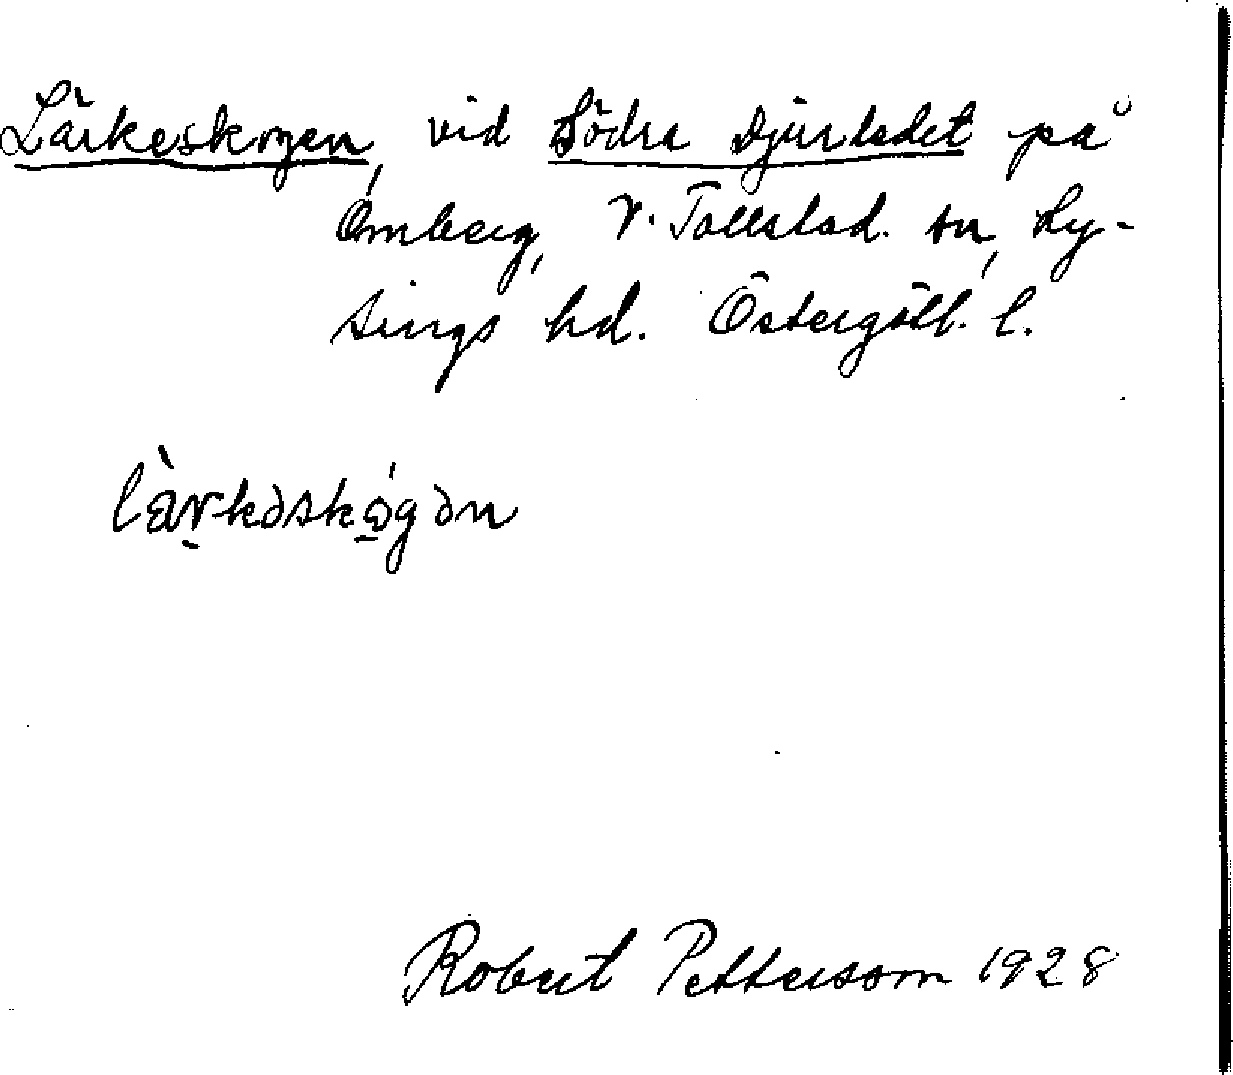 Lärkeskogen, vid Södra Djurledet på
Omberg, V. Tollstad. sn, Ly-
sings hd. Östergötl. l.
làr̰kəskó̱gən
Robert Pettersson 1928